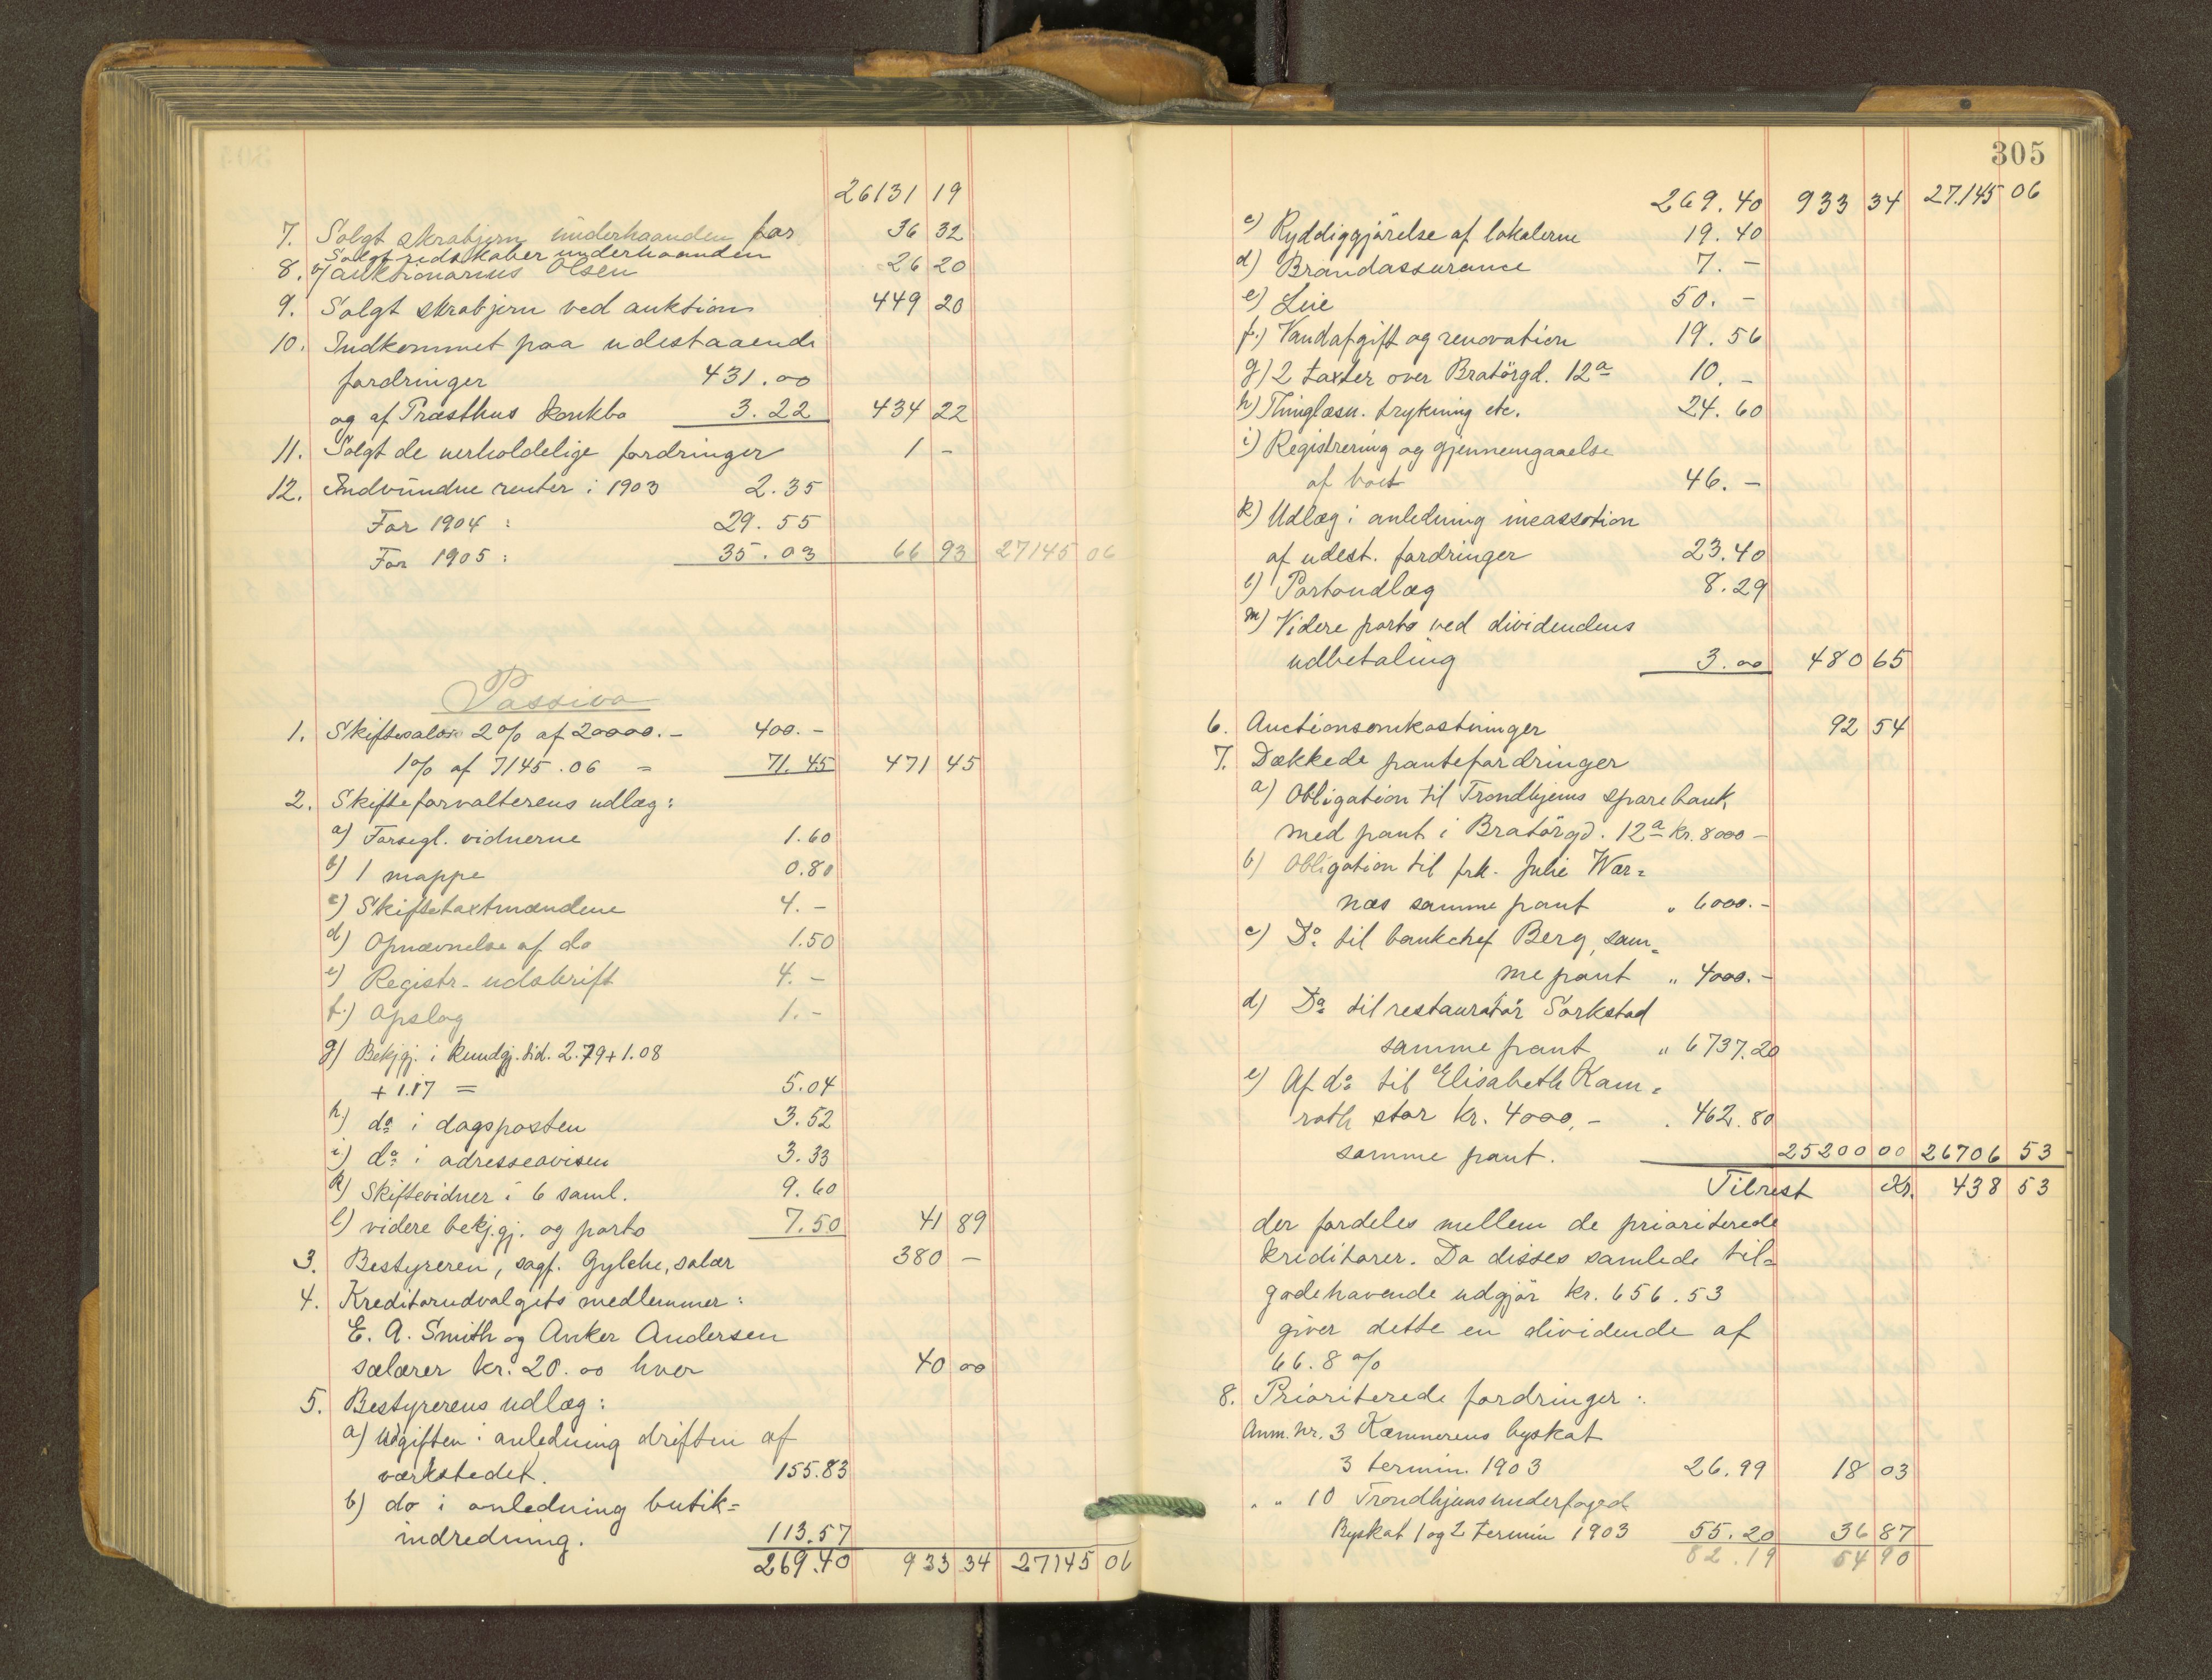 26131 19
7. Solgt skrabjern underhaanden for 36 32
Solgt redskaber underhaanden
8. v/ auktionarius Olsen 26 20
9. Solgt skrabjern ved auktion 449 20
10. Indkommet paa udestaaende
fordringer 431.00
og af Præsthus konkbo 3.22 434 22
11. Solgt de uerholdelige fordringer 1 -
12. Indvundne renter i 1903 2.35
For 1904 : 29.55
For 1905 : 35.03 66 93 27145 06
Passiva
1. Skiftesalær 2% af 20000.- 400.-
1% af 7145.06 = 71.45 471 45
2. Skifteforvalterens udlæg:
a) Forsegl. vidnerne 1.60
b) 1 mappe 0.80
c) Skiftetaxtmændene 4.-
d) Opnævnelse af do 1.50
e) Registr. udskrift 4.-
f.) Opslag 1.-
g) Bekjgj. i kundgj. tid. 2.79+1.08
+ 1.17 = 5.04
h.) do i dagsposten 3.52
i) do i adresseavisen 3.33
k) Skiftevidner i 6 saml. 9.60
l) videre bekj.gj. og porto 7.50 41 89
3. Bestyreren, sagf. Gylche, salær 380 -
4. Kreditorudvalgets medlemmer:
E. A. Smith og Anker Andersen
salærer kr. 20.00 hver 40 00
5. Bestyrerens udlæg:
a) Udgiften i anledning driften af
værkstedet. 155.83
b) do i anledning butik=
indredning. 113.57
269.40 933 34 27145 06
305
269.40 933 34 27.145 06
c) Ryddiggjörelse af lokalerne 19.40
d) Brandassurance 7.-
e) Leie 50.-
f.) Vandafgift og renovation 19.56
g) 2 taxter over Bratörgd. 12a 10.-
h) Thinglæsn. trykning etc. 24.60
i) Registrering og gjennemgaaelse
af boet 46.-
k) Udlæg i anledning incassation
af udest. fordringer 23.40
l) Portoudlæg 8.29
m) Videre porto ved dividendens
udbetaling 3.00 480 65
6. Auctionsomkostninger 92 54
7. Dækkede pantefordringer
a) Obligation til Trondhjems sparebank,
med pant i Bratörgd. 12a kr. 8000-
b) Obligation til frk. Julie Wær=
næs samme pant " 6000.-
c) Do til bankchef Berg, sam=
me pant " 4000.-
d) Do til restauratör Sorkstad
samme pant " 6737.20
e) Af do til Elisabeth Kam=
rath stor kr. 4000,- " 462.80
samme pant. 25200 00 26706 53
Tilrest Kr. 438 53
der fordeles mellem de prioriterede
kreditorer. Da disses samlede til=
godehavende udgjör kr. 656.53
giver dette en dividende af
66.8 %
8. Prioriterede fordringer:
Anm. nr. 3 Kæmnerens byskat
3 termin 1903 26.99 18 03
" " 10 Trondhjems underfoged
Byskat 1 og 2 termin 1903 55.20 36 87
82.19 54 90